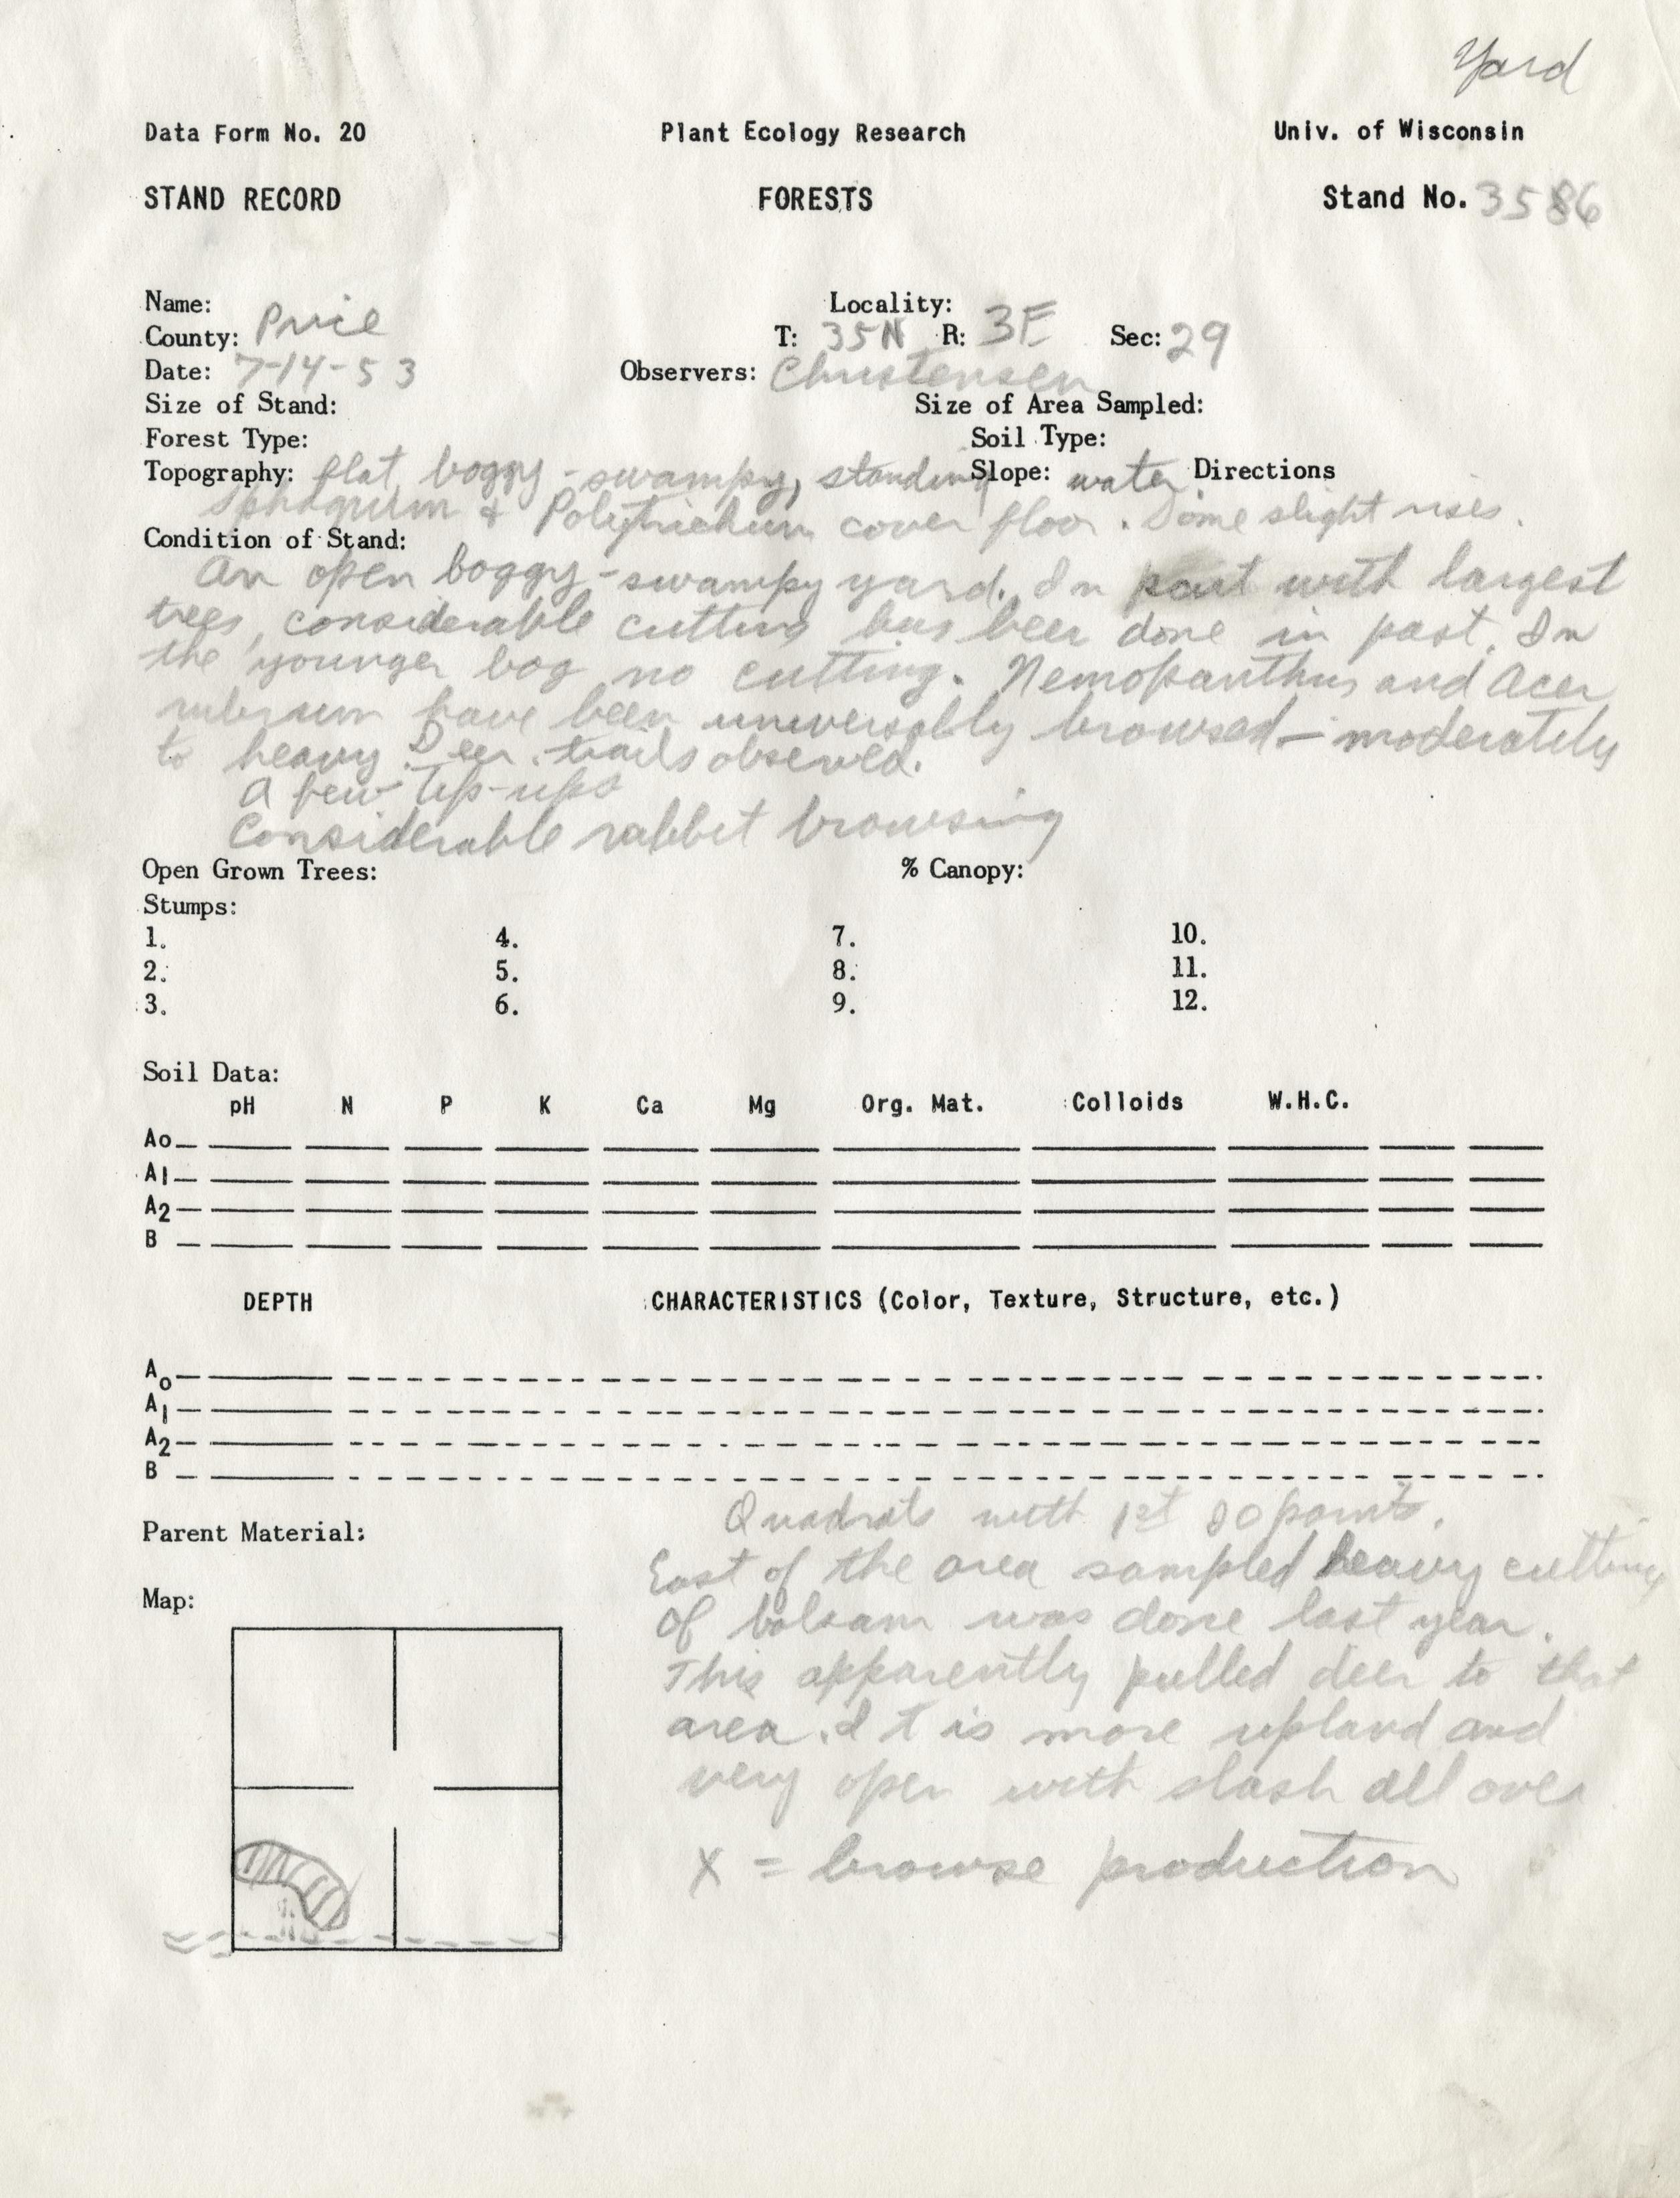 Yard
Data Form No. 20 Plant Ecology Research Univ. of Wisconsin
STAND RECORD FORESTS Stand No. 3586
Name: Locality:
County: Price T: 35N R: 3E Sec: 29
Date: 7-14-53 Observers: Christensen
Size of Stand: Size of Area Sampled:
Forest Type: Soil Type:
Topography: flat, boggy-swampy, standing Slope: water. Directions
Sphagnum & Polytrichum cover floor. Some slight rises.
Condition of Stand:
An open boggy-swampy yard. In part with largest
trees, considerable cutting has been done in past. In
the younger bog no cutting. Nemopanthus and Acer
rubrum have been universally browsed - moderately
to heavy. Deer trails observed.
A few tip-ups
Considerable rabbit browsing
Open Grown Trees: % Canopy:
Stumps:
1. 4. 7. 10.
2. 5. 8. 11.
3. 6. 9. 12.
Soil Data:
pH N P K Ca Mg Org. Mat. Colloids W.H.C.
Ao
A1
A2
B
DEPTH CHARACTERISTICS (Color, Texture, Structure, etc.)
Ao
A1
A2
B
Quadrats with 1st 20 points.
Parent Material:
East of the area sampled heavy cutting
Map:
of balsam was done last year.
This apparently pulled deer to that
area. It is more upland and
very open with slash all over
X = browse production